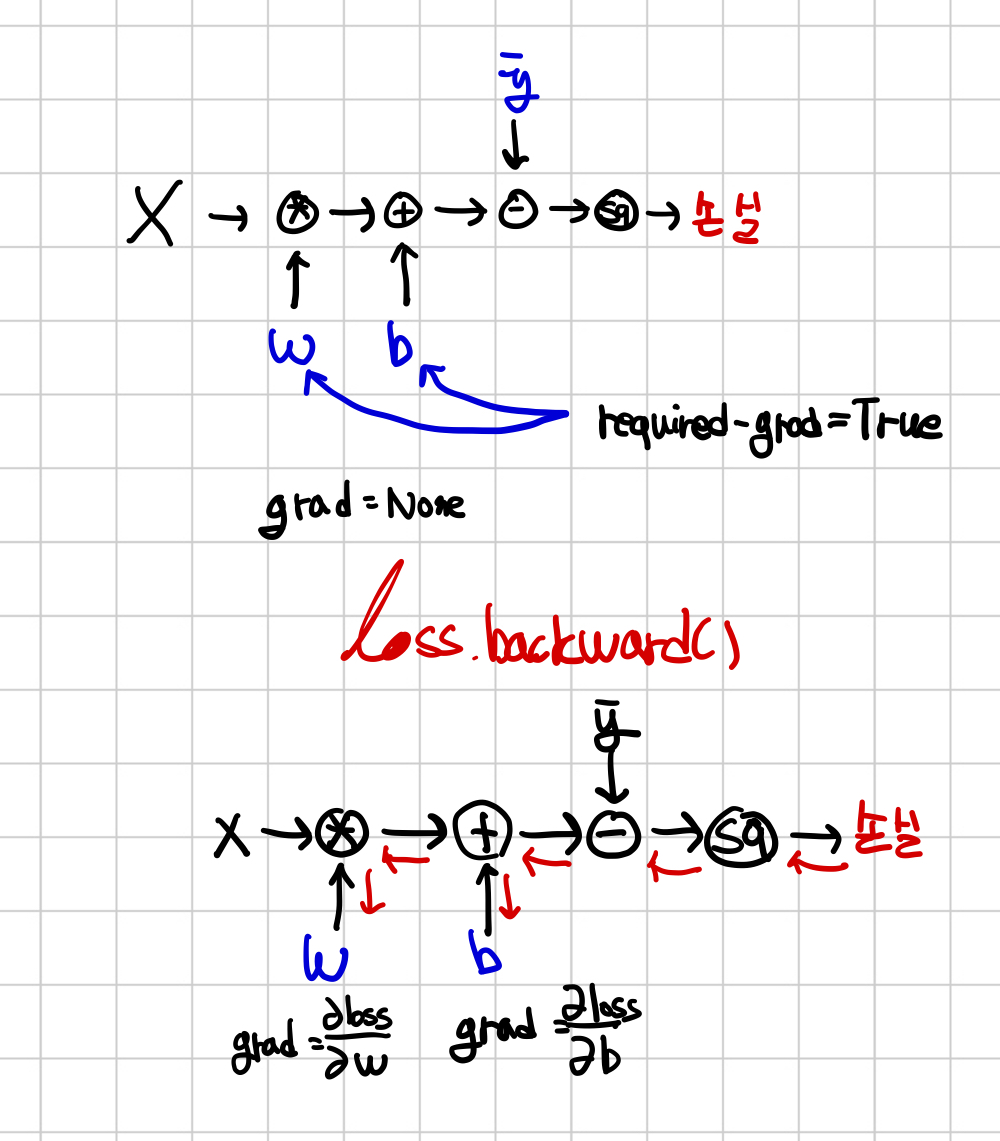 ȳ
X → * → + → - → sq → 손실
w b
required-grad=True
grad = None
loss.backward()
ȳ
X → * → + → - → sq → 손실
w b
grad = ∂loss/∂w grad = ∂loss/∂b